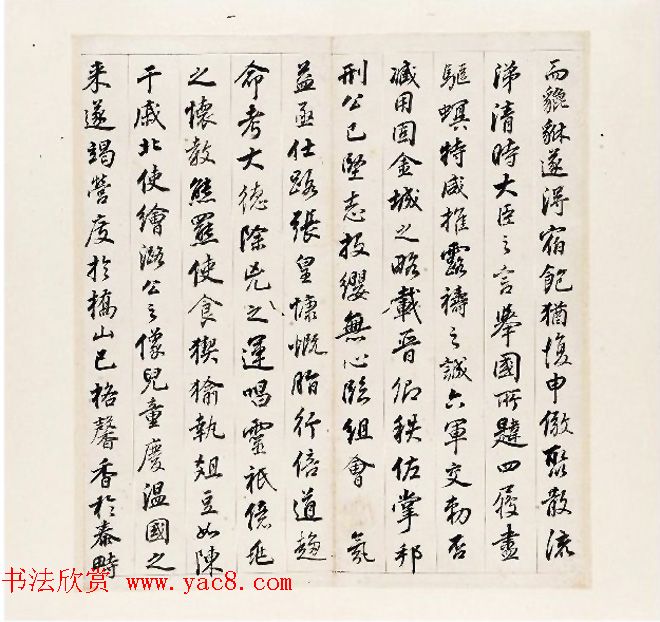 而貔貅遂得宿飽猶復申儆聚散流
涕清時大臣之言舉國所韙四履盡
驅螟特感推露禱之誠六軍交勑否
減用固金城之略載晉卿秩佐掌邦
刑公已堅志投纓無心臨組會氛
益亟仕路張皇慷慨脂行倍道趨
命考大德除兇之運唱靈祇億兆
之懷教熊羆使食猰㺄執俎豆如陳
干戚北使繪潞公之像兒童慶溫國之
来遂竭營度於橋山已格馨香於泰畤
书法欣赏 www.yac8.com